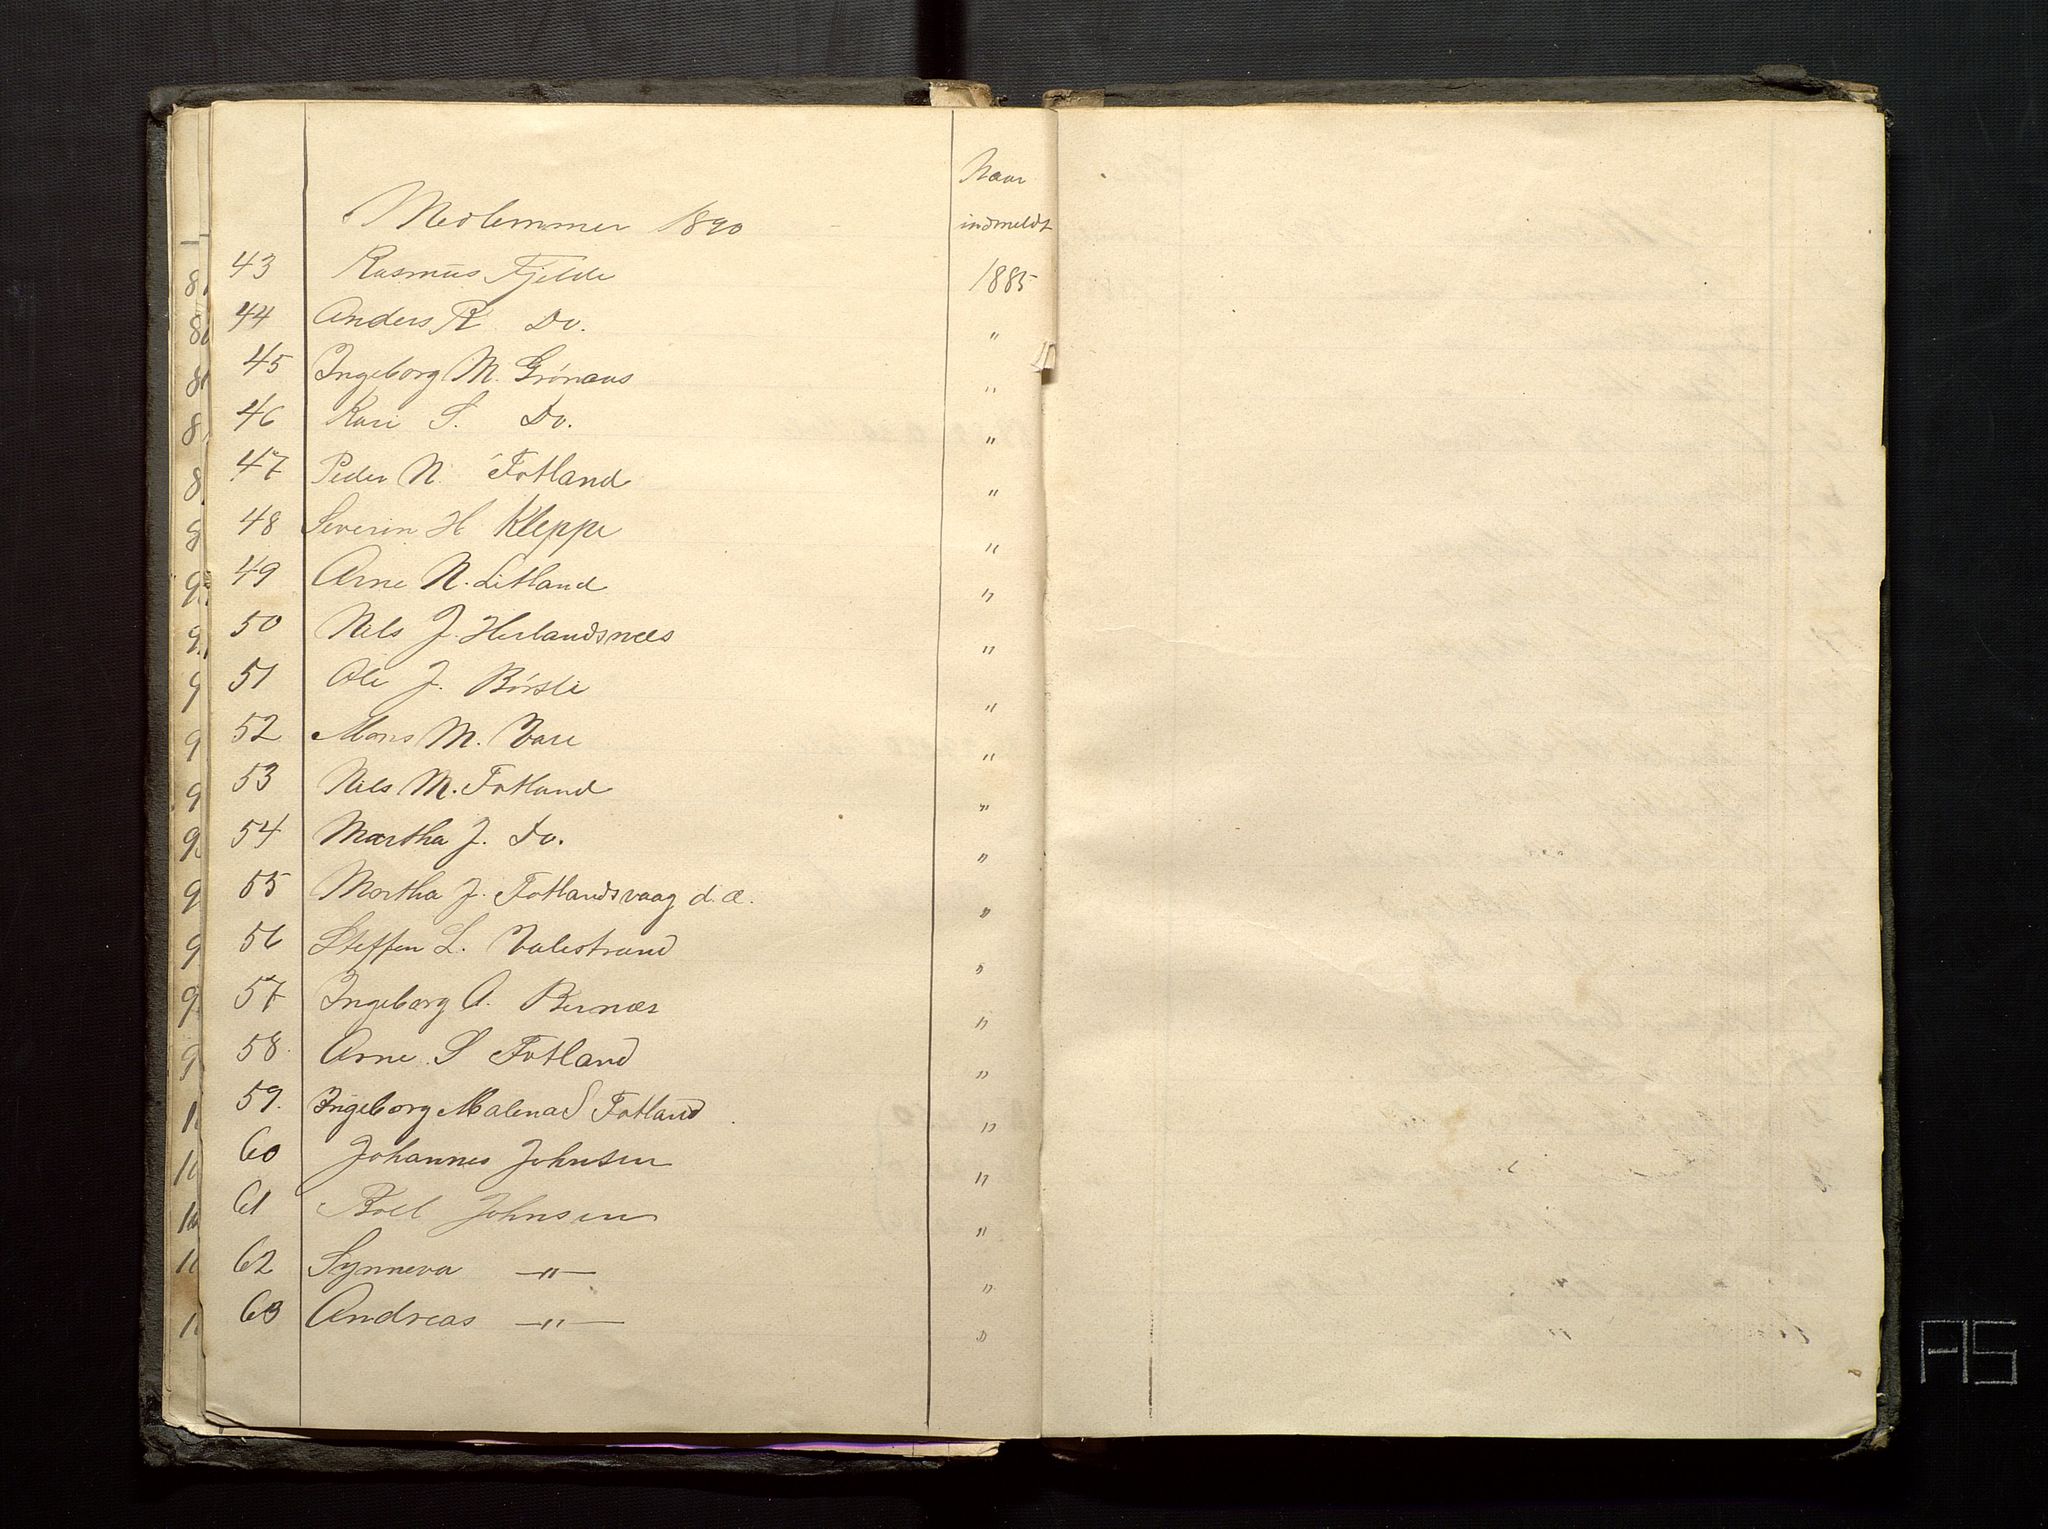 Naar
Medlemmer 1890 indmeldt
43 Rasmus Fjelde 1885
44 Anders R. Do. "
45 Ingeborg M. Grönaas "
46 Kari S. Do. "
47 Peder N. Fotland "
48 Severin H Kleppe "
49 Arne N. Litland "
50 Nils J. Herlandsnæs "
51 Ole J. Börslie "
52 Mons M. Vare "
53 Nils M. Fotland "
54 Martha J. Do. "
55 Martha J. Fotlandsvaag d.æ. "
56 Steffen L. Valestrand "
57 Ingeborg A. Bernæs "
58. Arne S Fotland "
59. Ingeborg Malena S Fotland. "
60 Johannes Johnsen "
61 Boel Johnsen "
62 Synneva —"— "
63 Andreas —"— "
AS